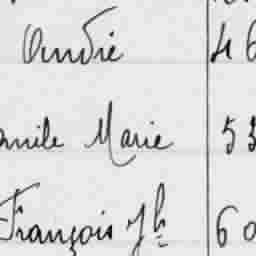 André 46
amile Marie 53
François Jh 60